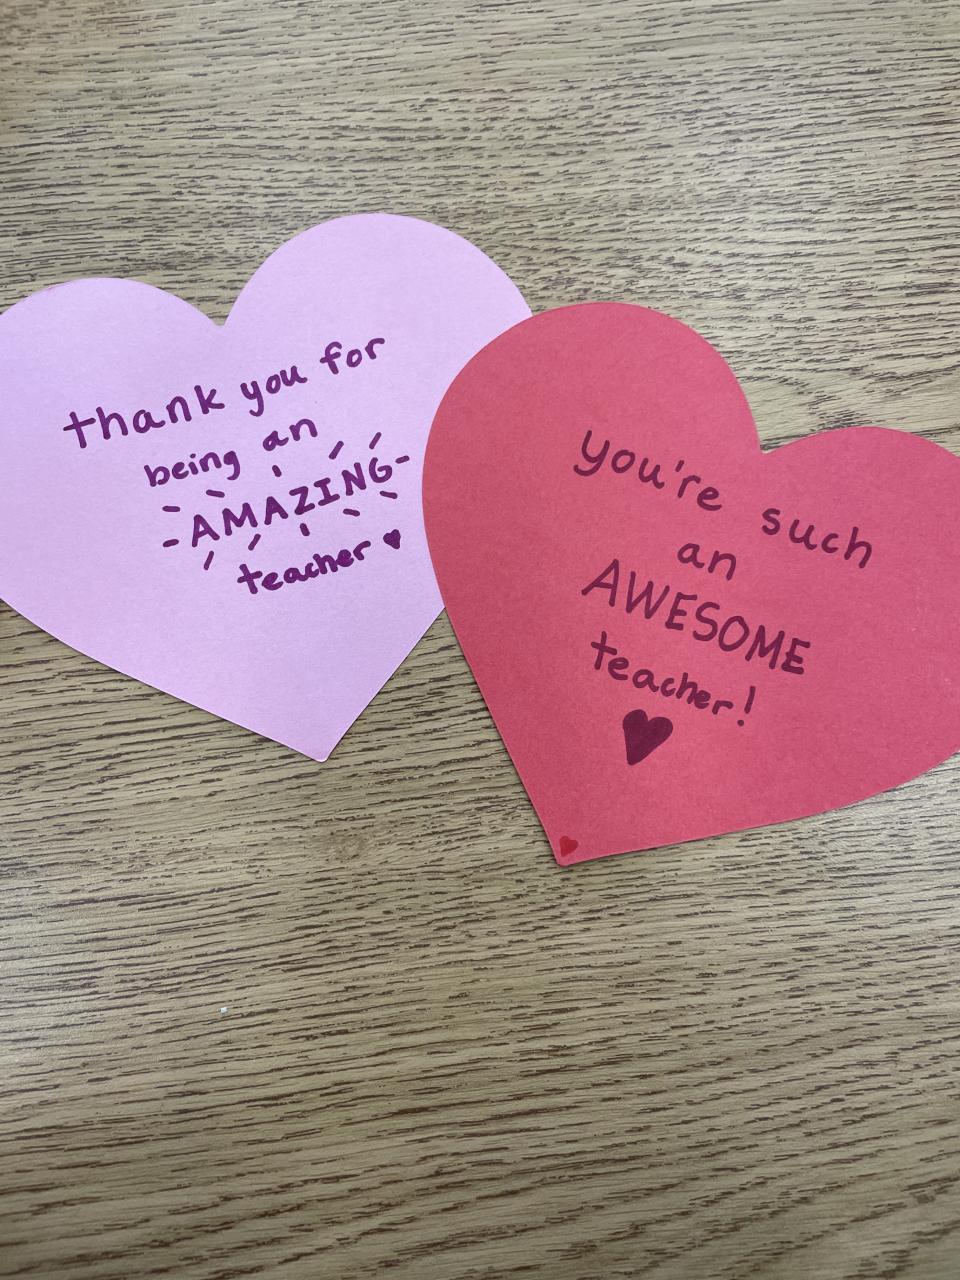 thank you for
being an
AMAZING
teacher ♥
you're such
an
AWESOME
teacher!
♥